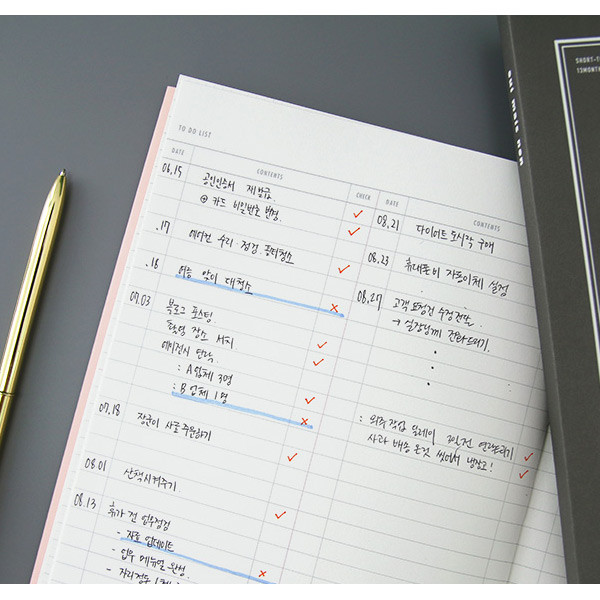 TO DO LIST
DATE CONTENTS CHECK DATE CONTENTS
06.15 공인인증서 재발급.
@ 카드 비밀번호 변경.
.17 에어컨 수리 점검. 필터청소
.18 여름 맞이 대청소
07.03 블로그 포스팅
촬영 장소 서치
에이전시 연락
: A업체 3명
: B업체 1명
07.18 장군이 사료 주문하기
08.01 산책시켜주기
08.13 휴가 전 업무점검
- 자료 업데이트
- 업무 메뉴얼 완성.
08.21 다이어트 도시락 구매
08.23 휴대폰비 자동이체 설정
08.27 고객 요청건 수정전달.
→ 실장님께 전화드리기.
: 외주작업 딜레이 3일전 연락드리기
배송 온것 씻어서 냉장고!
SHORT-T
13MONTH